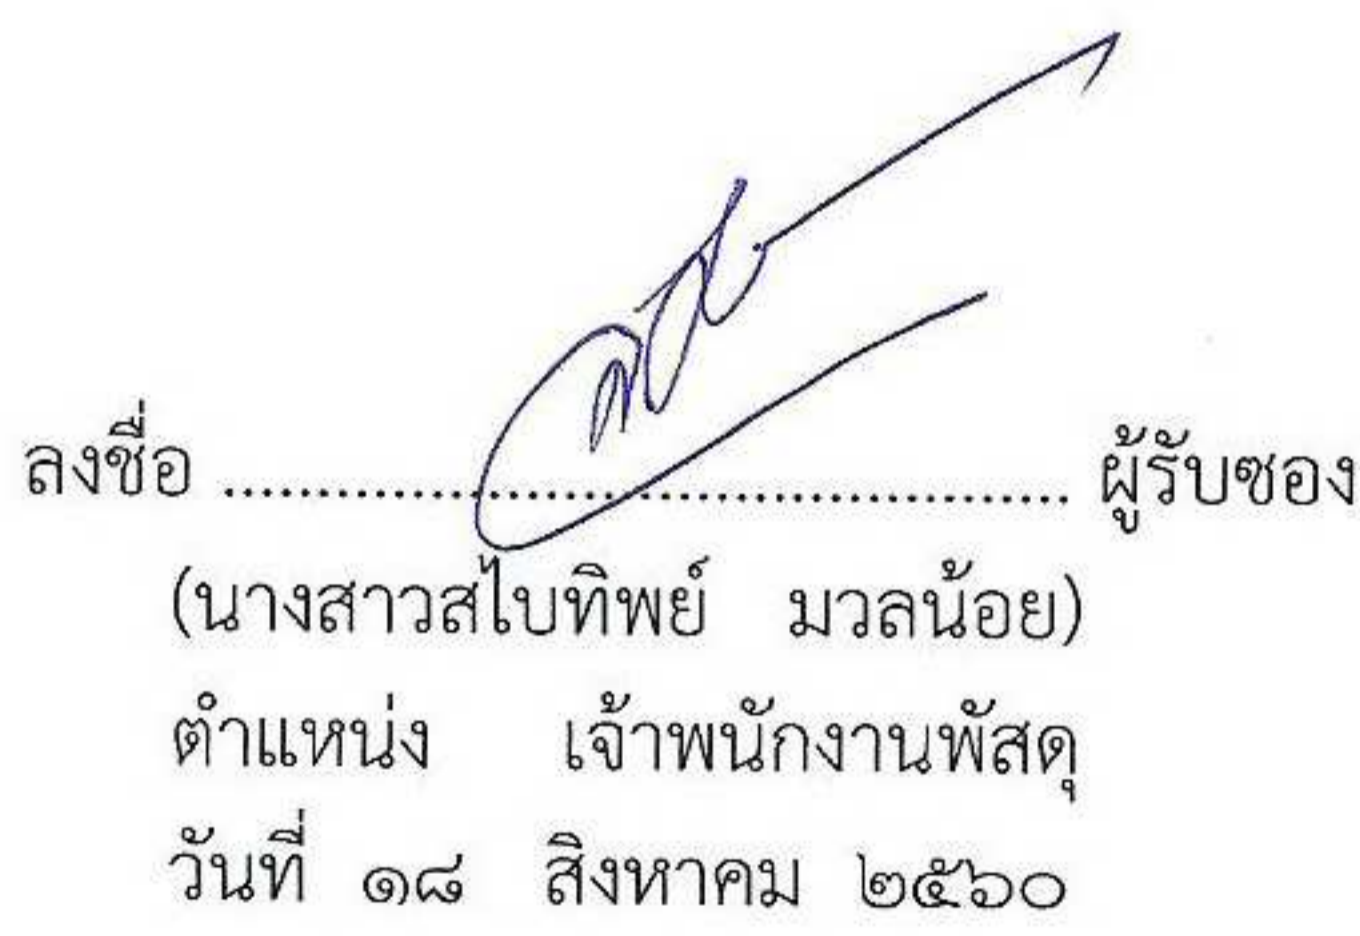 ลงชื่อ ........................................................ ผู้รับซอง
(นางสาวสไบทิพย์ มวลน้อย)
ตำแหน่ง เจ้าพนักงานพัสดุ
วันที่ ๑๘ สิงหาคม ๒๕๖๐